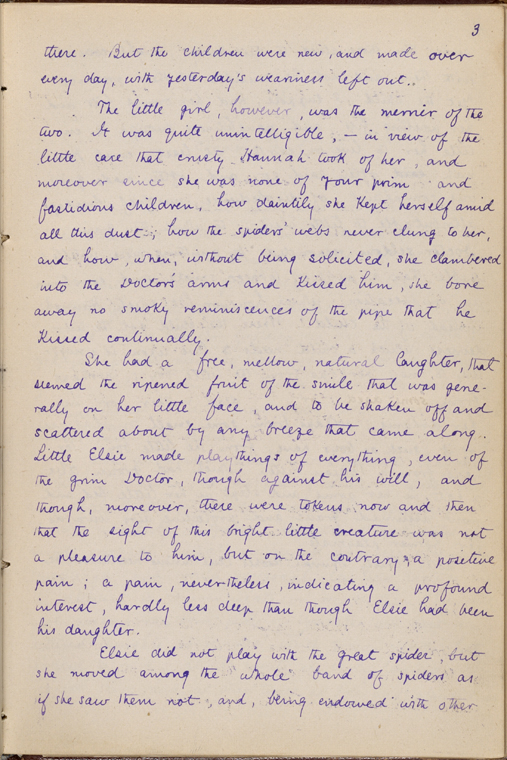 3
there. But the children were new, and made over
every day, with yesterday's weariness left out..
The little girl, however, was the merrier of the
two. It was quite unintelligible, – in view of the
little care that crusty Hannah took of her, and
moreover since she was none of your prim and
fastidious children, how daintily she kept herself amid
all this dust; how the spiders' webs never clung to her,
and how, when, without being solicited, she clambered
into the Doctor's arms and kissed him, she bore
away no smoky reminiscences of the pipe that he
kissed continually.
She had a free, mellow, natural laughter, that
seemed the ripened fruit of the smile that was gene-
rally on her little face, and to be shaken off and
scattered about by any breeze that came along..
Little Elsie made playthings of everything, even of
the grim Doctor, though against his will, and
though, moreover, there were tokens now and then
that the sight of this bright little creature was not
a pleasure to him, but on the contrary, a positive
pain; a pain, nevertheless, indicating a profound
interest, hardly less deep than though Elsie had been
his daughter.
Elsie did not play with the great spider, but
she moved among the whole band of spiders as
if she saw them not, and, being endowed with other